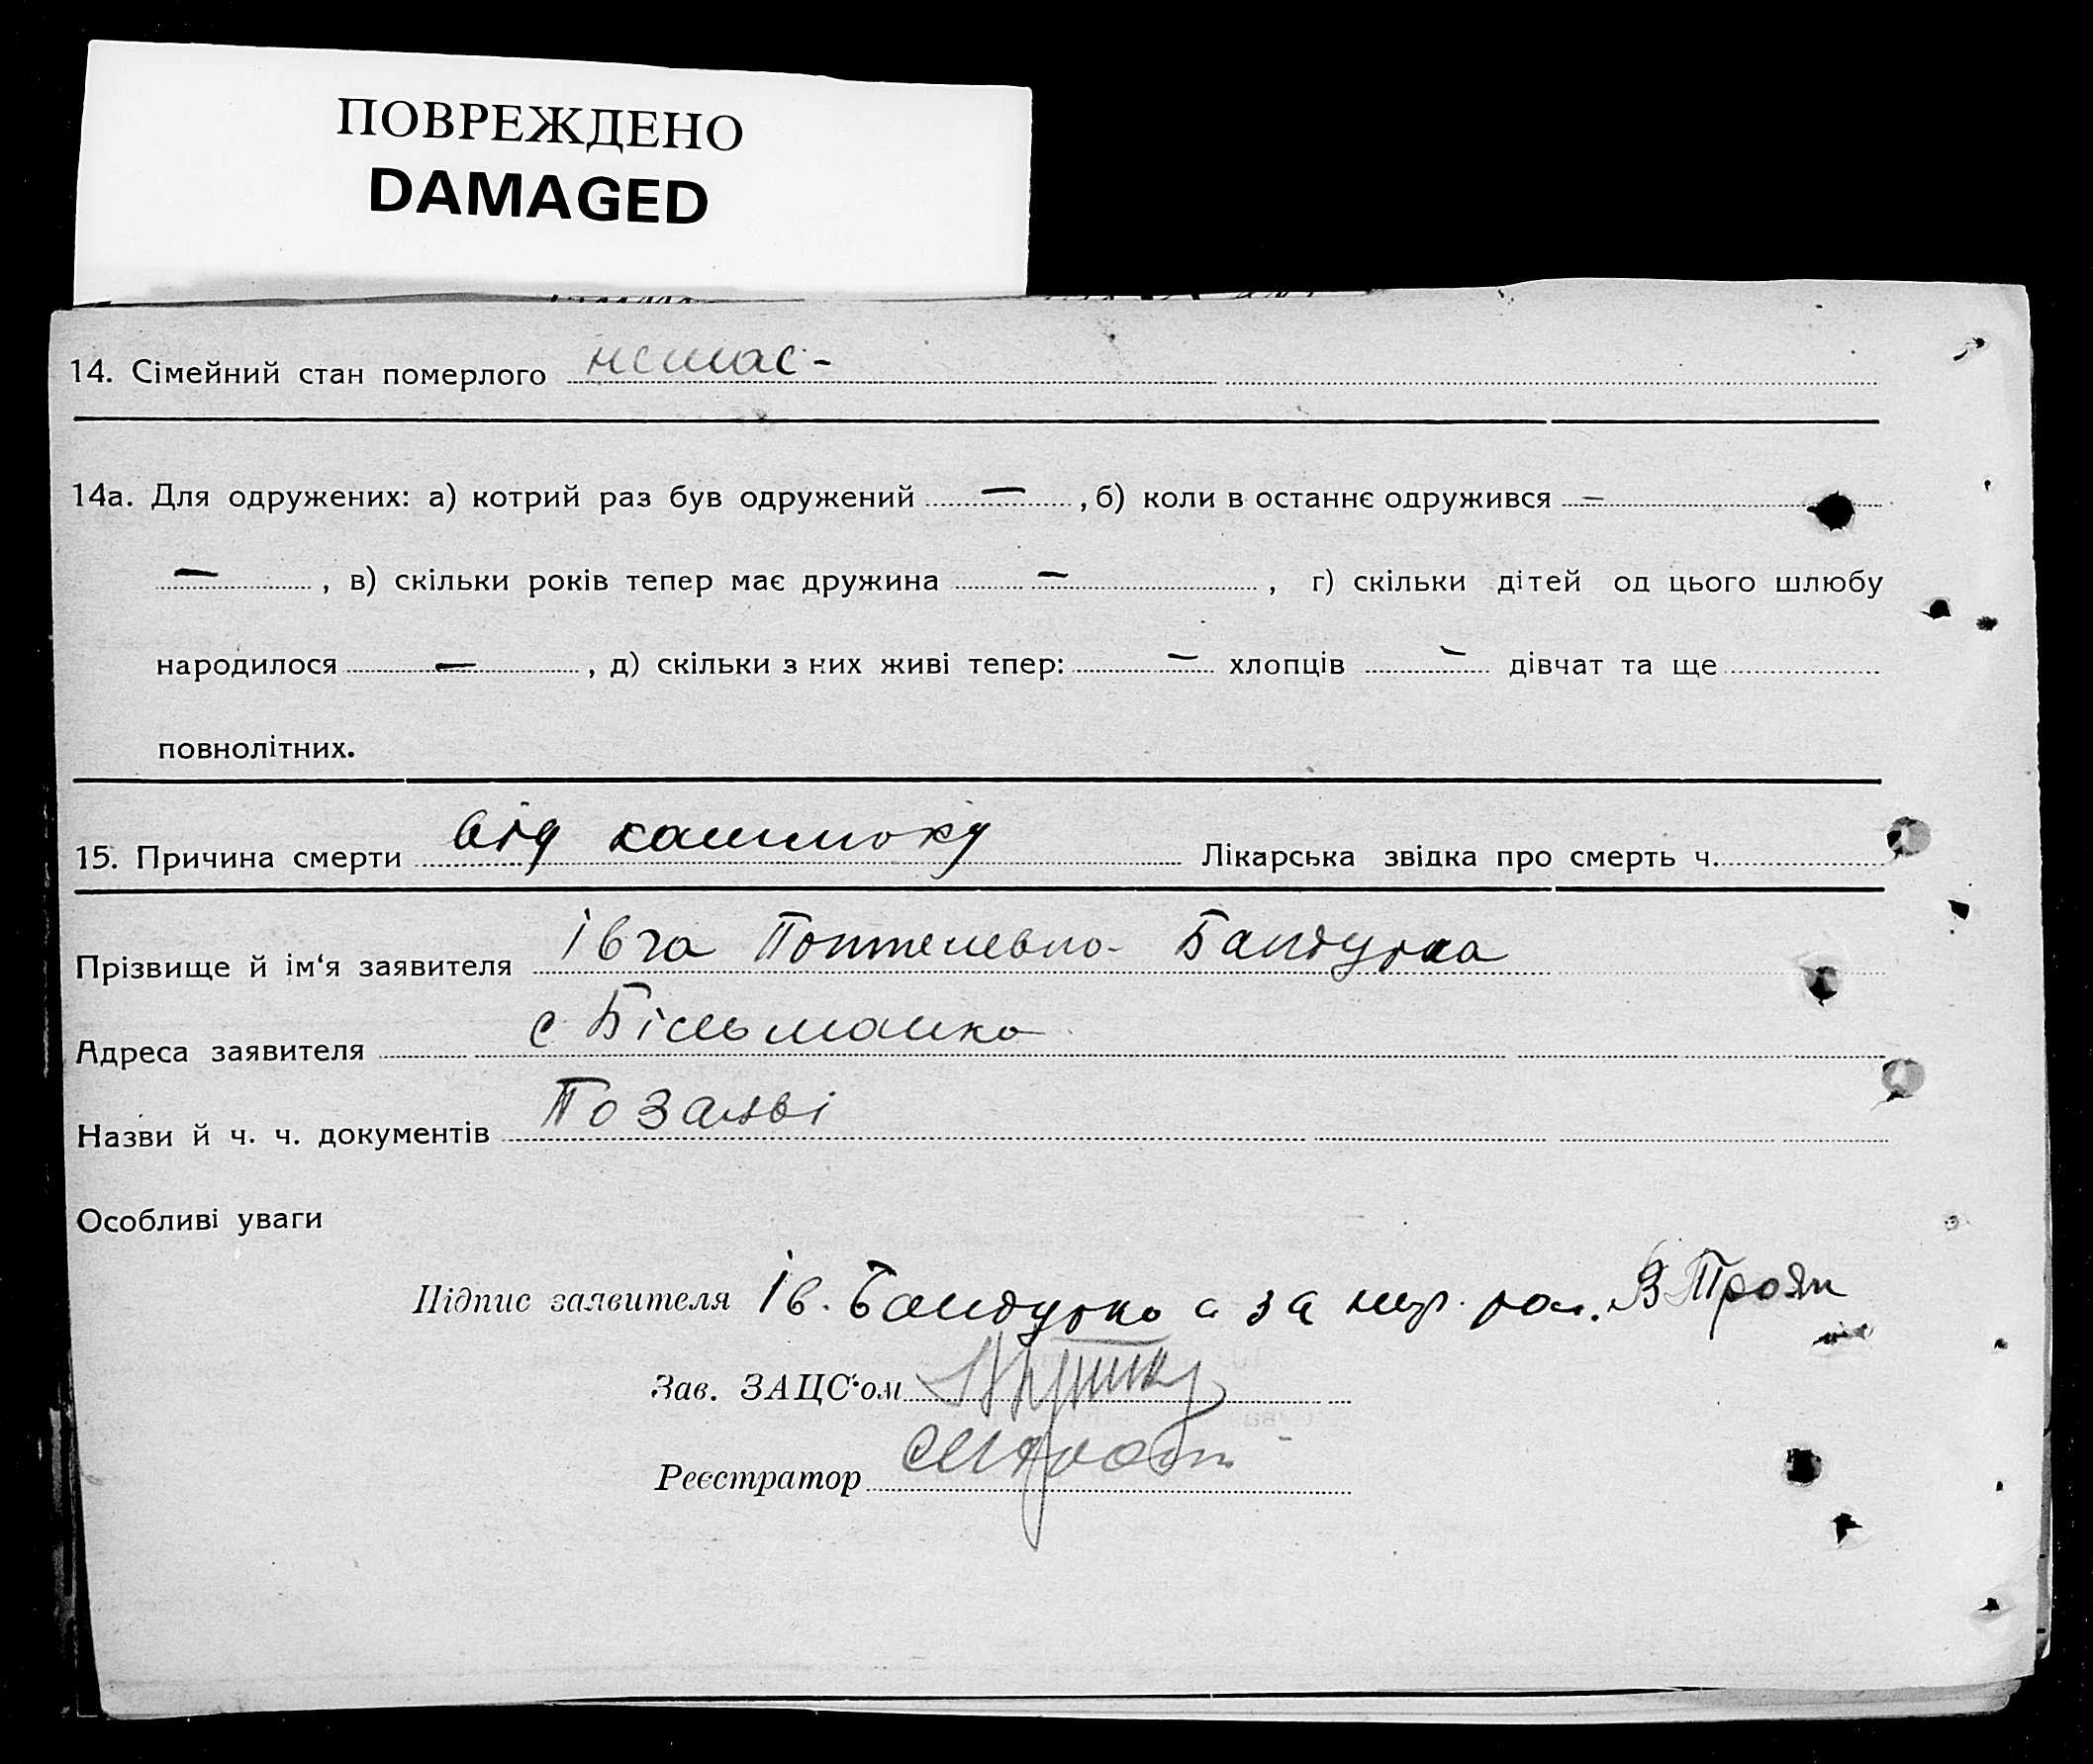 ПОВРЕЖДЕНО
DAMAGED
14. Сімейний стан померлого немає -
14а. Для одружених: а) котрий раз був одружений — , б) коли в останнє одружився —
— , в) скільки років тепер має дружина — , г) скільки дітей од цього шлюбу
народилося — , д) скільки з них живі тепер: — хлопців — дівчат та ще
повнолітних.
15. Причина смерти від кашлюку Лікарська звідка про смерть ч.
Прізвище й ім‘я заявителя Івга Бандурка
Адреса заявителя с Більманка
Назви й ч. ч. документів По заяві
Особливі уваги
Підпис заявителя Ів. Бандурка а за В Троян
Зав. ЗАЦС‘ом
Реєстратор